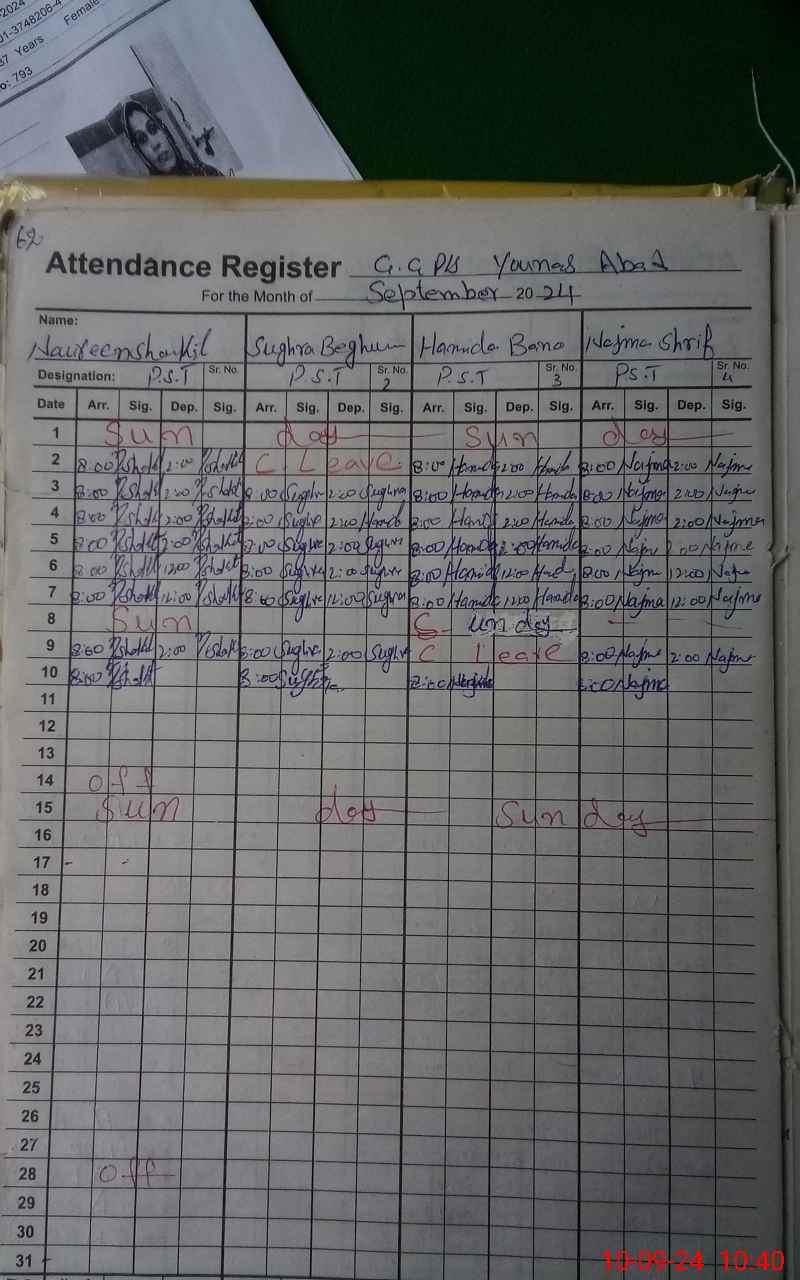 2024
01-3748206-4
37 Years Female
o: 793
62
Attendance Register G.G P/S Younas Abad
For the Month of September 2024
Name:
Naureenshakil Sughra Beghum Hamida Bano Najma Shrif
Designation: P.S.T Sr. No. P.S.T Sr. No. 2 P.S.T Sr. No. 3 P.S.T Sr. No. 4
Date Arr. Sig. Dep. Sig. Arr. Sig. Dep. Sig. Arr. Sig. Dep. Sig. Arr. Sig. Dep. Sig.
1 Sun day Sun day
2 8:00 2:00 C Leave 8:00 Hamda 2:00 Hamda 8:00 Najma 2:00 Najme
3 8:00 2:00 8:00 Sughra 2:00 Sughra 8:00 Hamda 2:00 Hamda 8:00 Najma 2:00 Najme
4 8:00 2:00 8:00 Sughre 2:00 8:00 2:00 Hamida 8:00 Najma 2:00 Najma
5 8:00 2:00 8:00 Sughre 2:00 Sughra 8:00 Hamda 2:00 Hamida 8:00 Najm 2:00 Najme
6 8:00 12:00 8:00 Sughre 2:00 Sughra 8:00 Hamid 12:00 8:00 Najm 12:00
7 8:00 12:00 8:00 Sughre 12:00 Sughra 8:00 Hamda 12:00 Hamda 8:00 Najma 12:00 Najme
8 Sun S unday
9 8:00 2:00 8:00 Sughra 2:00 Sughra C Leave 8:00 Najme 2:00 Najme
10 8:00 8:00 Sughra 8:00 8:00 Najma
11
12
13
14 off
15 Sun day Sunday
16
17
18
19
20
21
22
23
24
25
26
27
28 off
29
30
31
10-09-24 10:40